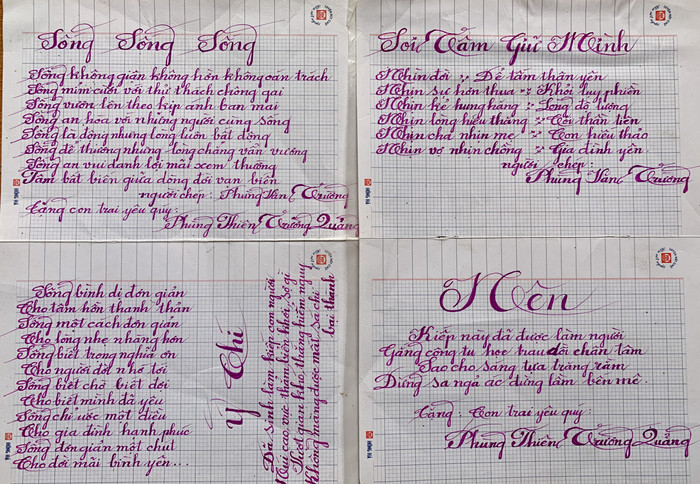 Sống Sống Sống
Sống không giận không hờn không oán trách
Sống mỉm cười với thử thách chông gai
Sống vươn lên theo kịp ánh ban mai
Sống an hòa với những người cùng sống
Sống là động nhưng lòng luôn bất động
Sống để thương nhưng lòng chẳng vấn vương
Sống an vui danh lợi mãi xem thường
Tâm bất biến giữa dòng đời vạn biến
người chép: Phùng Văn Trưởng
Tặng con trai yêu quý:
Phùng Thiên Trường Quảng
Soi Tâm Giữ Mình
Nhìn đời Để tâm thân yên
Nhìn sự hơn thua Khỏi lụy phiền
Nhìn kẻ hung hăng Lòng độ lượng
Nhìn lòng hiếu thắng Cõi thần tiên
Nhìn cha nhìn mẹ Con hiếu thảo
Nhìn vợ nhìn chồng Gia đình yên
người chép:
Phùng Văn Trưởng
Sống bình dị đơn giản
Cho tâm hồn thanh thản
Sống một cách đơn giản
Cho lòng nhẹ nhàng hơn
Sống biết trọng nghĩa ơn
Cho người đời nhớ tới
Sống biết chờ biết đợi
Cho biết mình đã yêu
Sống chỉ ước một điều
Cho gia đình hạnh phúc
Sống đơn giản một chút
Cho đời mãi bình yên...
Ý Chí
Đã sinh làm kiếp con người
Núi cao vực thẳm biển khơi sợ gì
Thời gian khó thăng hiểm nguy
Không nàng được mất sá chi
bại thành
Nên
Kiếp này đã được làm người
Gắng công tu học trau dồi chân tâm
Sao cho sáng tựa trăng rằm
Đừng sa ngã ác đừng lầm bến mê.
Tặng: Con trai yêu quý:
Phùng Thiên Trường Quảng